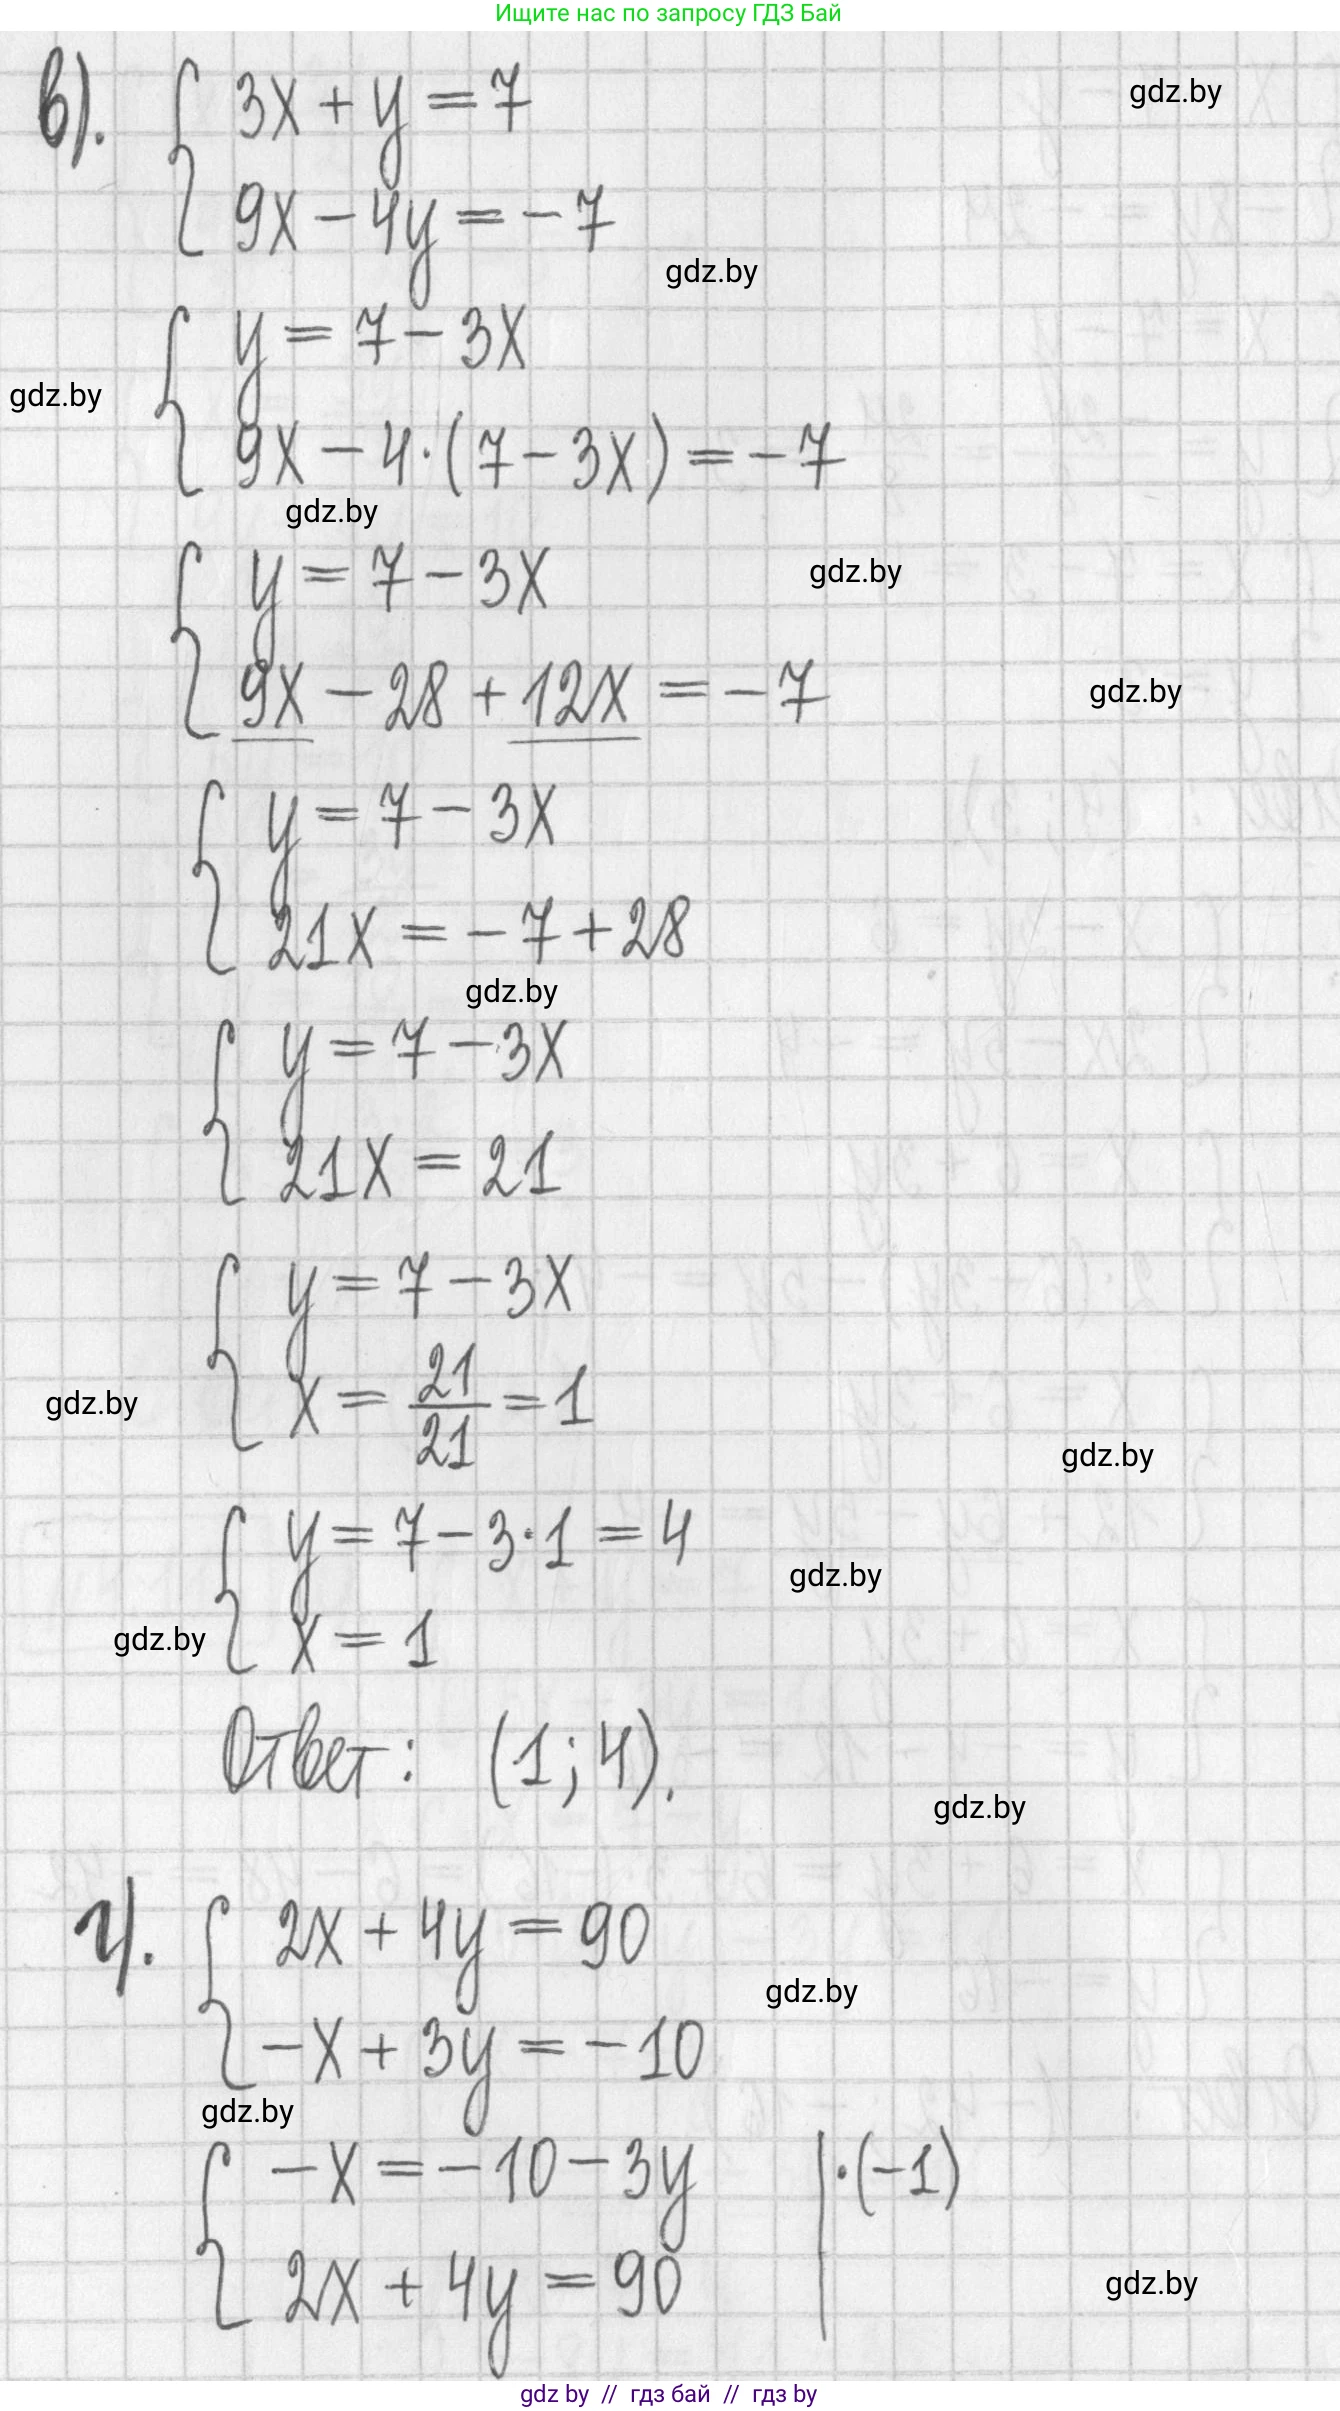 Ищите нас по запросу ГДЗ Бай
в). 3x + y = 7
gdz.by
9x - 4y = -7
gdz.by
y = 7 - 3x
gdz.by
9x - 4·(7 - 3x) = -7
gdz.by
y = 7 - 3x
gdz.by
9x - 28 + 12x = -7
gdz.by
y = 7 - 3x
21x = -7 + 28
gdz.by
y = 7 - 3x
21x = 21
y = 7 - 3x
x = 21/21 = 1
gdz.by
gdz.by
y = 7 - 3·1 = 4
gdz.by
x = 1
gdz.by
Ответ: (1; 4).
gdz.by
г). 2x + 4y = 90
gdz.by
-x + 3y = -10
gdz.by
-x = -10 - 3y |·(-1)
2x + 4y = 90
gdz.by
gdz by // гдз бай // гдз by